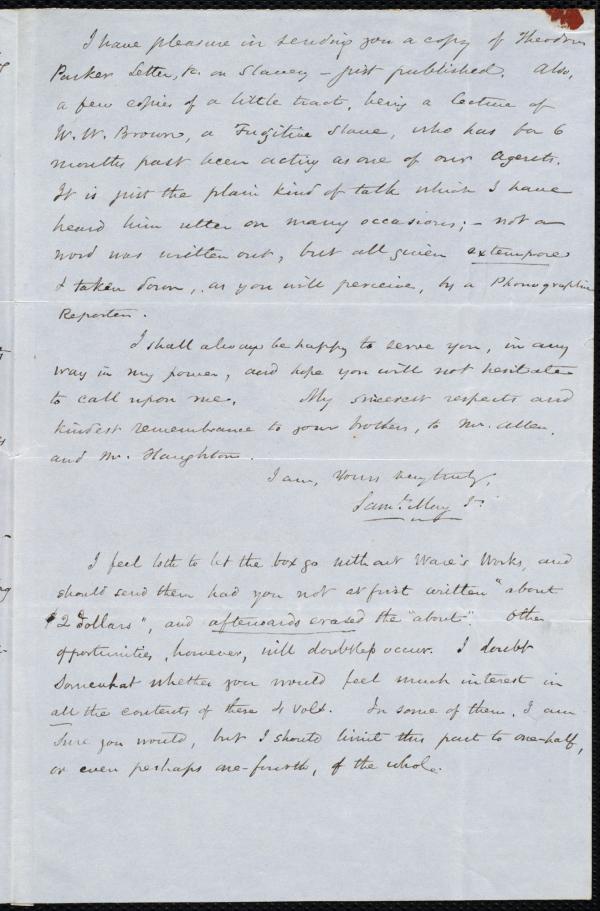 I have pleasure in sending you a copy of Theodore
Parker Letter, &c. on Slavery – just published. Also,
a few copies of a little tract, being a lecture of
W. W. Brown, a Fugitive Slave, who has for 6
months past been acting as one of our Agents.
It is just the plain kind of talk which I have
heard him utter on many occasions; – not a
word was written out, but all given extempore
& taken down, as you will perceive, by a Phonographic
Reporter.
I shall always be happy to serve you, in any
way in my power, and hope you will not hesitate
to call upon me. My sincerest respects and
kindest remembrance to your brothers, to Mr. Allen,
and Mr. Haughton.
I am, Yours very truly,
Saml. May Jr.
I feel loth to let the box go without Ware's Works, and
should send them had you not at first written "about
$2 dollars", and afterwards erased the "about". Other
opportunities, however, will doubtless occur. I doubt
somewhat whether you would feel much interest in
all the contents of these 4 vols. In some of them, I am
sure you would, but I should limit this part to one-half,
or even perhaps one-fourth, of the whole.